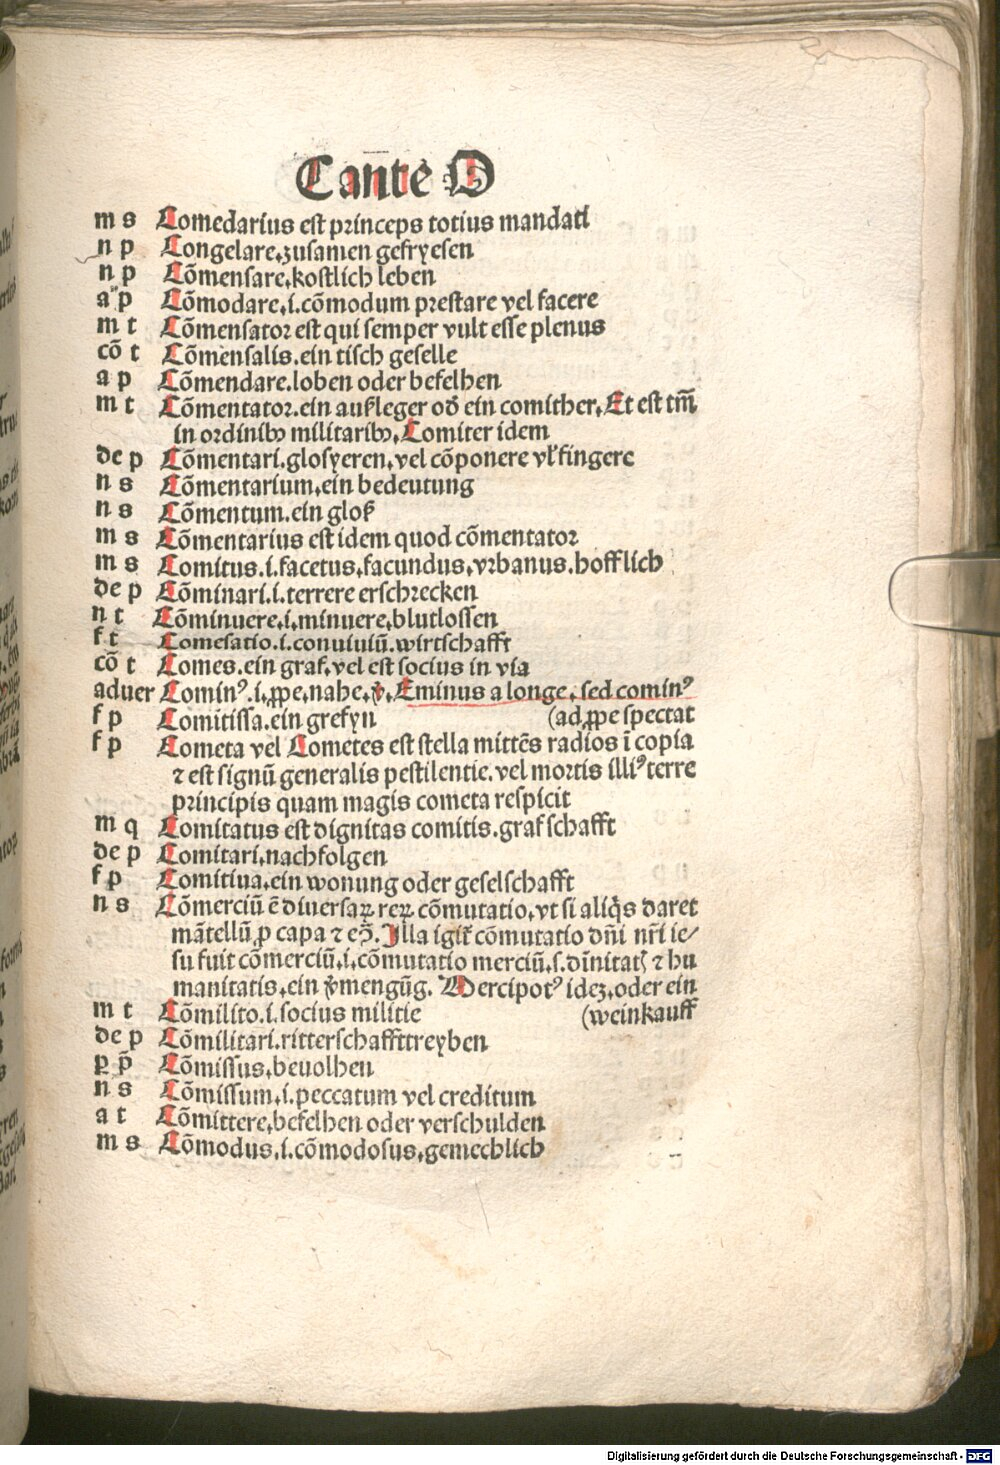 C ante O
m s Comedarius est princeps totius mandati
n p Congelare.zusamen gefryesen
n p Cõmensare.kostlich leben
a p Cõmodare.i.cõmodum prestare vel facere
m t Cõmensator est qui semper vult esse plenus
cõ t Cõmensalis.ein tisch geselle
a p Cõmendare.loben oder befelhen
m t Cõmentator.ein außleger oď ein comither.Et est tm̃
in ordinibꝰ militaribꝰ.Comiter idem
de p Cõmentari.glosyeren.vel cõponere vl̕ fingere
n s Cõmentarium.ein bedeutung
n s Cõmentum.ein gloß
m s Cõmentarius est idem quod cõmentator
m s Comitus.i.facetus.facundus.vrbanus.hofflich
de p Cõminari.i.terrere erschrecken
n t Cõminuere.i.minuere.blutlossen
f t Comesatio.i.conuiuiũ.wirtschafft
cõ t Comes.ein graf.vel est socius in via
aduer Cominꝰ.i.ꝓpe.nahe.ꝟ.Eminus a longe.sed cominꝰ
f p Comitissa.ein grefyn (ad ꝓpe spectat
f p Cometa vel Cometes est stella mittẽs radios ĩ copia
⁊ est signũ generalis pestilentie.vel mortis illiꝰ terre
principis quam magis cometa respicit
m q Comitatus est dignitas comitis.graf schafft
de p Comitari.nachfolgen
f p Comitiua.ein wonung oder geselschafft
n s Cõmerciũ ẽ diuersaꝝ reꝝ cõmutatio.vt si aliq̃s daret
mãtellũ ꝓ capa ⁊ eↄ̃.Illa igit̃ cõmutatio dñi nr̃i ie/
su fuit cõmerciũ.i.cõmutatio merciũ.s.diñitatꝭ ⁊ hu
manitatis.ein ꝟmengũg. Mercipotꝰ idez.oder ein
m t Cõmilito.i.socius militie (weinkauff
de p Cõmilitari.ritterschaffttreyben
ꝑ p̃ Cõmissus.beuolhen
n s Cõmissum.i.peccatum vel creditum
a t Cõmittere.befelhen oder verschulden
m s Cõmodus.i.cõmodosus.gemechlich
Digitalisierung gefördert durch die Deutsche Forschungsgemeinschaft - DFG